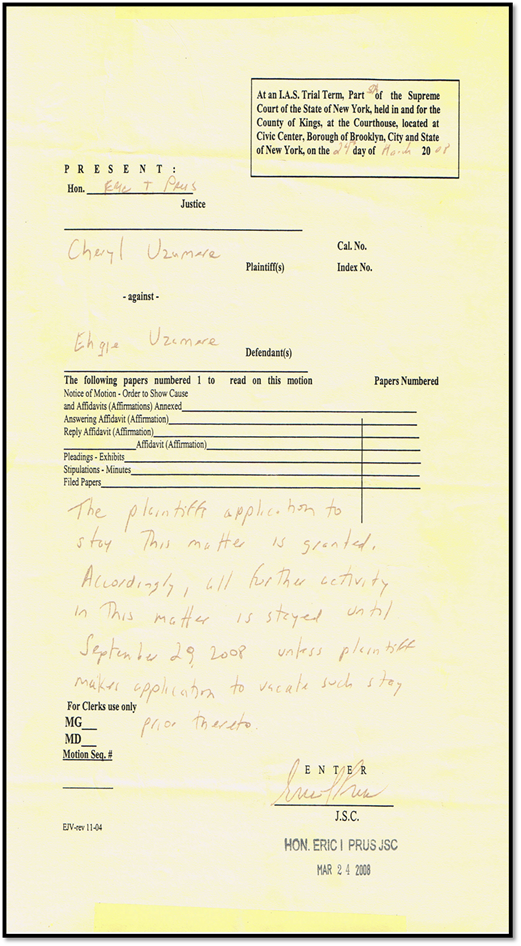 At an I.A.S. Trial Term, Part of the Supreme
Court of the State of New York, held in and for the
County of Kings, at the Courthouse, located at
Civic Center, Borough of Brooklyn, City and State
of New York, on the 24th day of March 20 08
P R E S E N T :
Hon. Eric I Prus
Justice
Cheryl Uzamere
Cal. No.
Plaintiff(s) Index No.
- against -
Ehgie Uzamere
Defendant(s)
The following papers numbered 1 to read on this motion Papers Numbered
Notice of Motion - Order to Show Cause
and Affidavits (Affirmations) Annexed
Answering Affidavit (Affirmation)
Reply Affidavit (Affirmation)
Affidavit (Affirmation)
Pleadings - Exhibits
Stipulations - Minutes
Filed Papers
The plaintiffs application to
stay This matter is granted.
Accordingly, all further activity
in This matter is stayed until
September 29, 2008 unless plaintiff
makes application to vacate such stay
prior thereto.
For Clerks use only
MG
MD
Motion Seq. #
E N T E R
J.S.C.
EJV-rev 11-04
HON. ERIC I PRUS JSC
MAR 24 2008